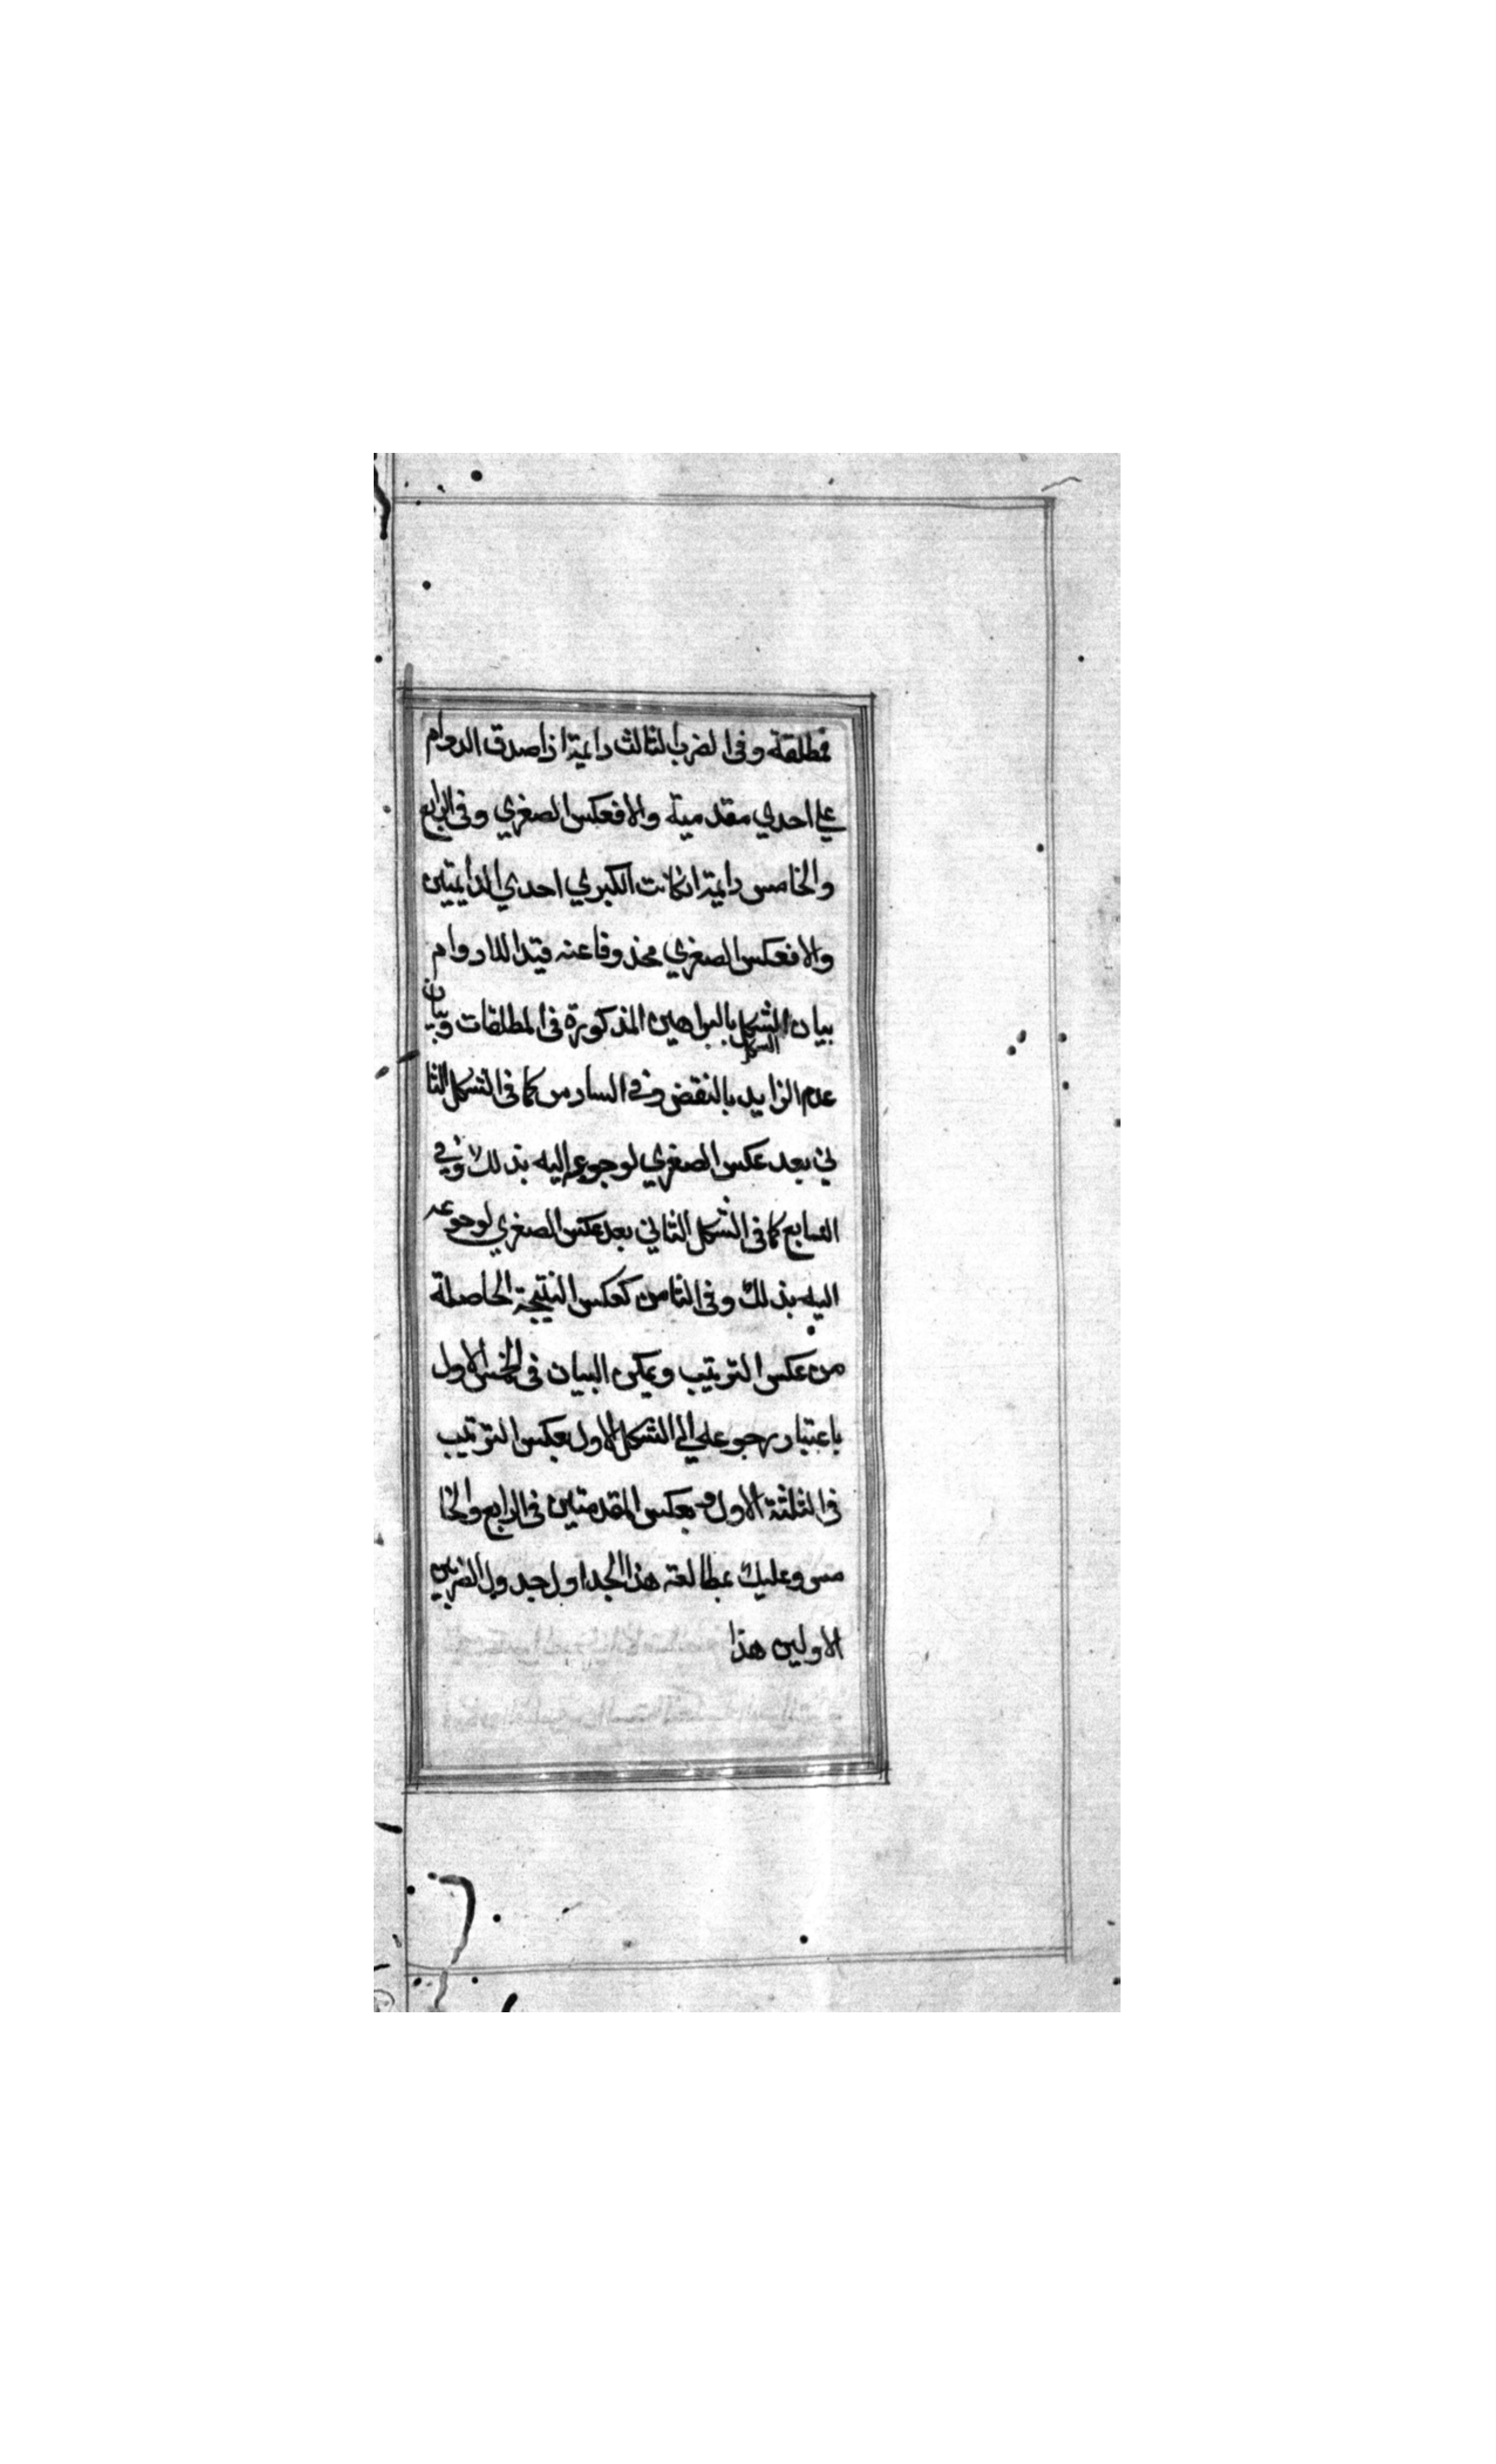 فمطلقة وفى الضرب الثالث دايمة اذا صدق الدوام
علي احدي مقدميتة والا فعكس الصغري وفى الرابع
والخامس دايمة انكانت الكبري احدي الدايمتين
والا فعكس الصغري محذوفا عنه قيد اللادوام
بيان الشكل بالبراهين المذكورة فى المطلقات وبيان
الشكل
عدم الزايد بالنقض وفي السادس كما فى الشكل الثا
ني بعد عكس الصغري لرجوعه اليه بذلك وفي
السابع كما فى الشكل الثاني بعد عكس الصغري لرجوعه
اليه بذلك وفى الثامن كعكس النتيجة الحاصلة
من عكس الترتيب ويمكن البيان فى الخمس الاول
باعتبار رجوعه الي الشكل الاول بعكس الترتيب
فى الثلثة الاول وبعكس المقدمتين فى الرابع والخا
مس وعليك بمطالعة هذا الجداول جدول الضربين
الاولين هذا